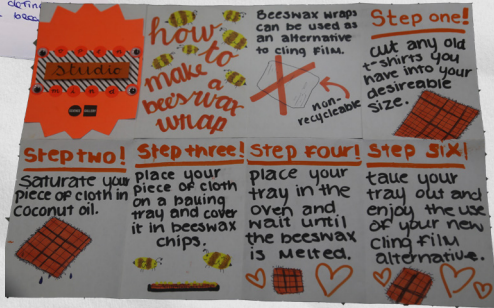 studio
how
to
make a
beeswax
wrap
Beeswax wraps
can be used as
an alternative
to cling film.
non-
recycleable
Step one!
cut any old
t-shirts you
have into your
desireable
size.
Step two!
Saturate your
piece of cloth in
coconut oil.
Step three!
place your
piece of cloth
on a baking
tray and cover
it in beeswax
chips.
Step Four!
place your
tray in the
oven and
wait until
the beeswax
is melted.
Step six!
take your
tray out and
enjoy the use
of your new
cling film
alternative.